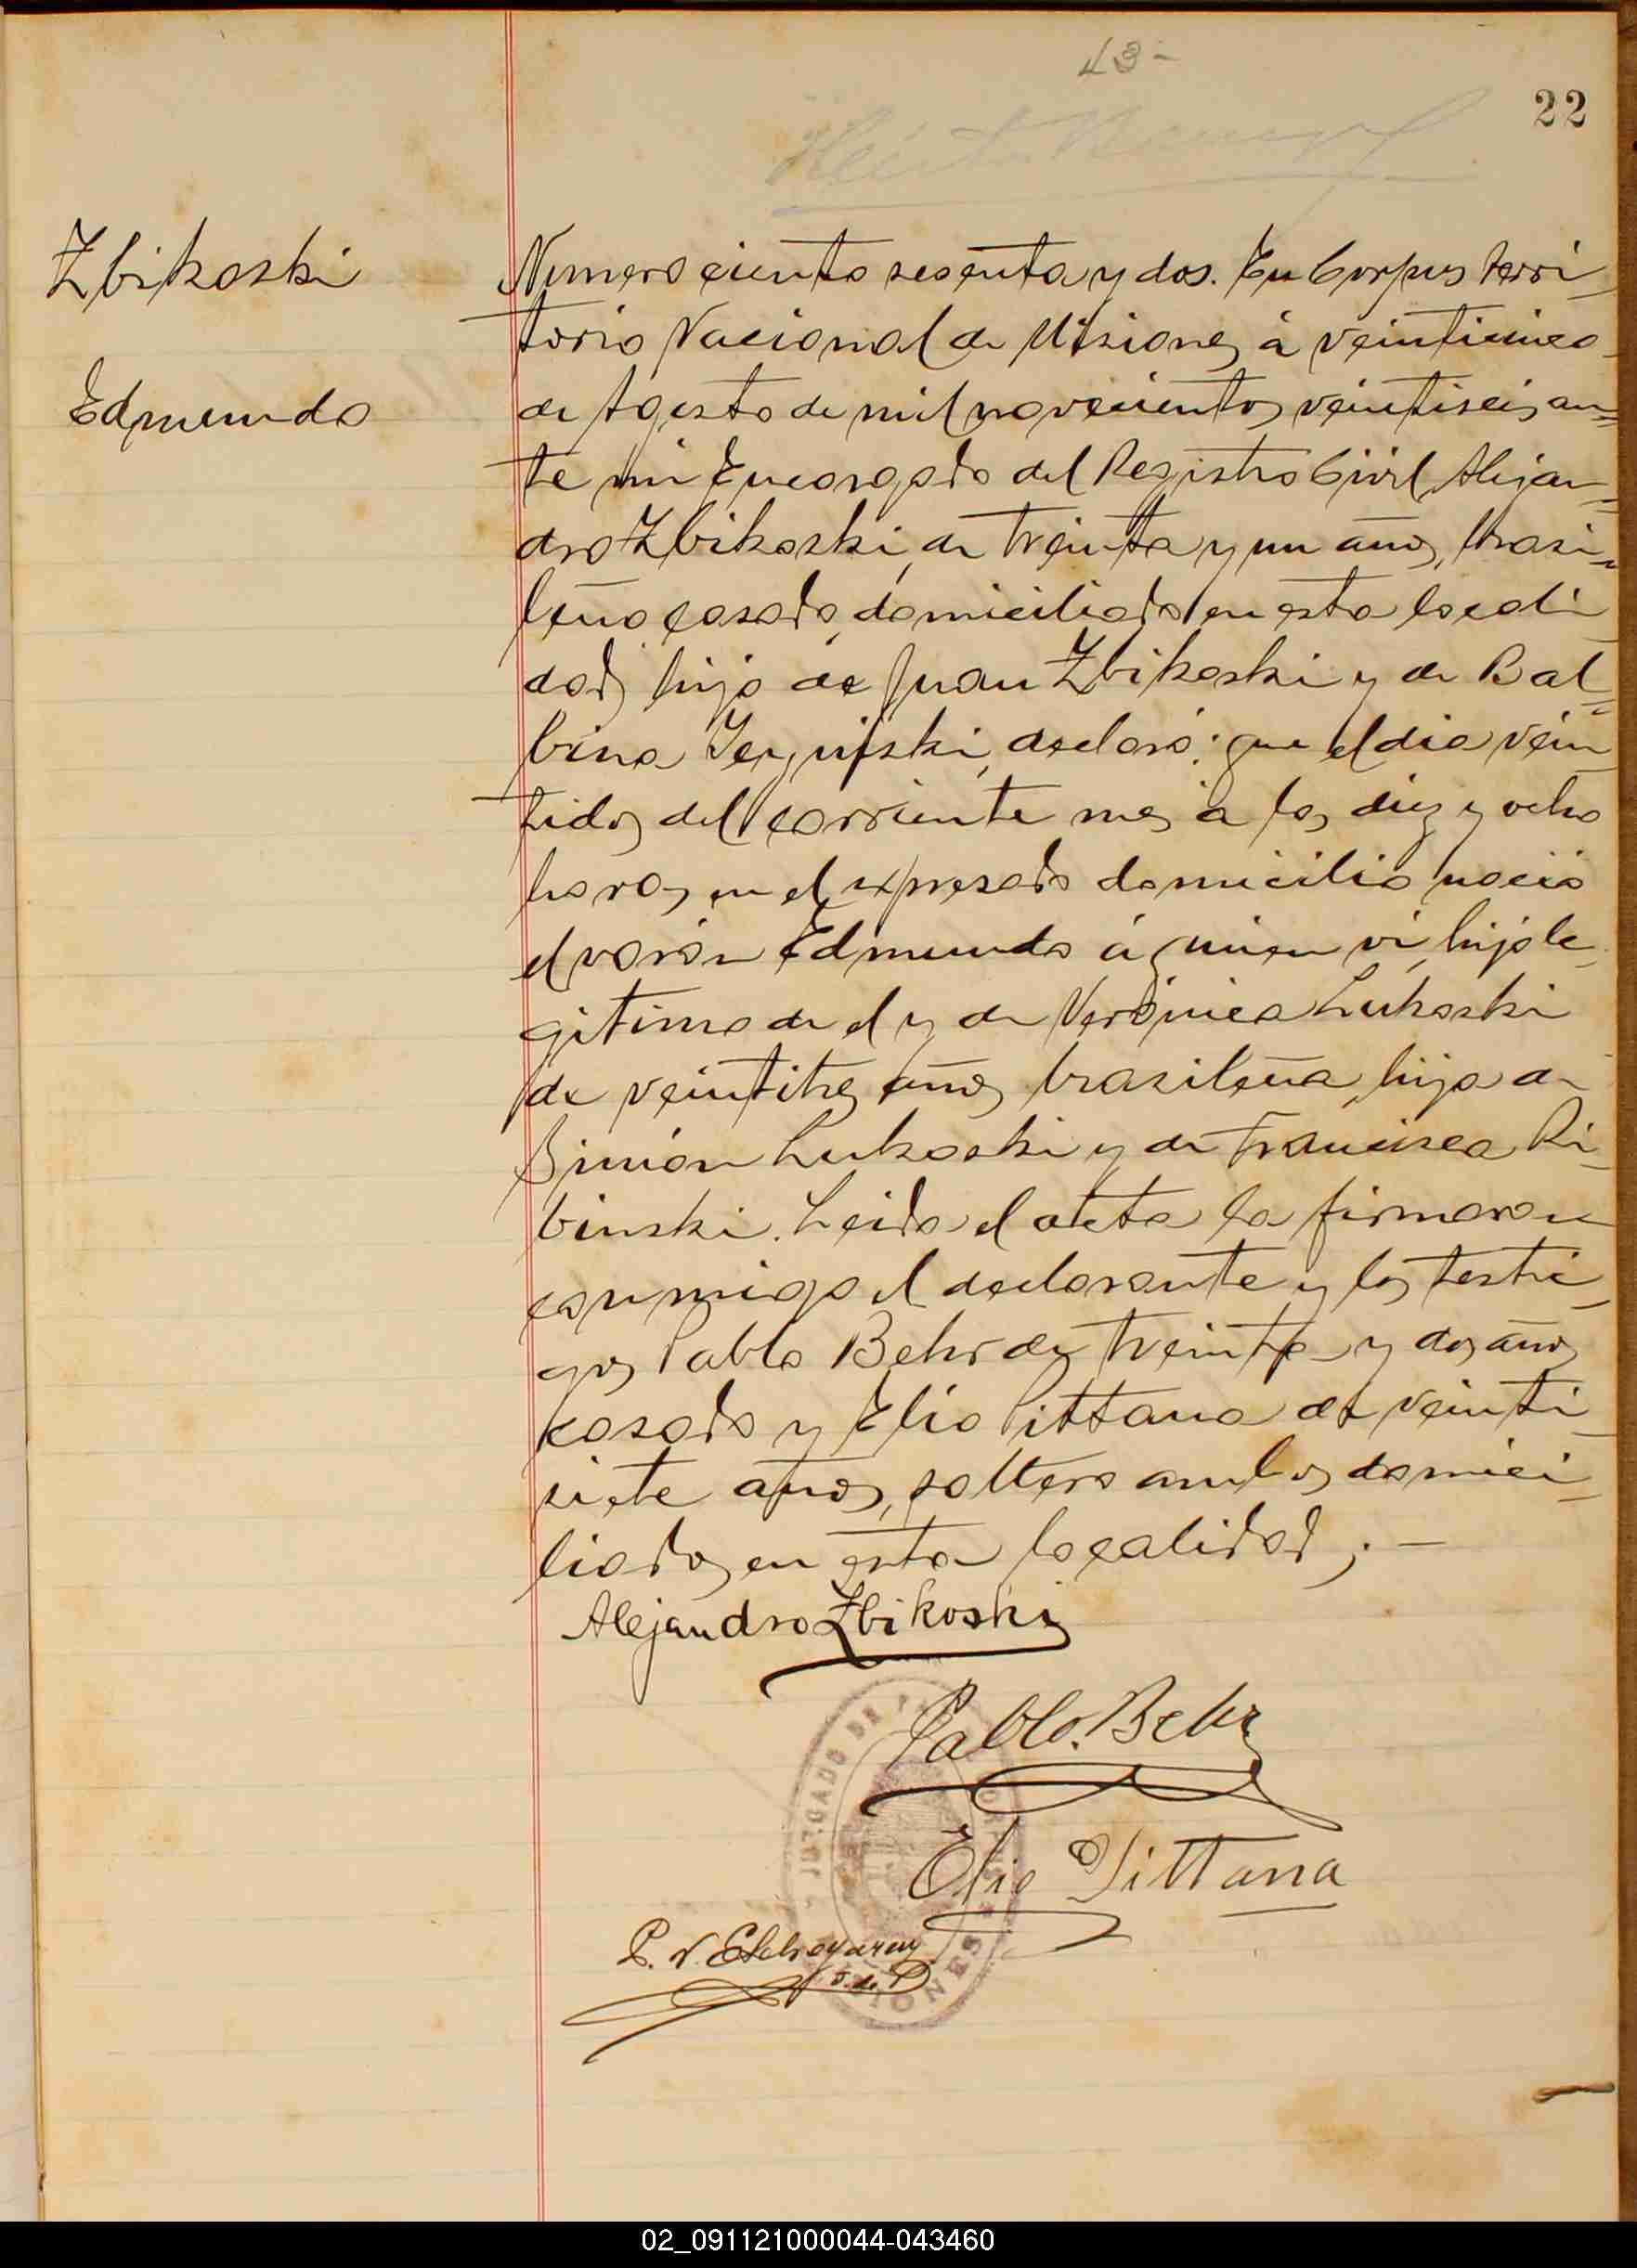 43-
22
Zbikoski
Edmundo
Numero ciento sesenta y dos. En Corpus terri
torio Nacional de Misiones á veinticinco
de Agosto de mil novecientos veintiseis an=
te mi Encargado del Registro Civil, Alejan=
dro Zbikoski, de treinta y un años, brasi=
leño, casado, domiciliado en esta locali
dad, hijo de Juan Zbikoski y de Bal=
bina declaró: que el dia vein
tidos del corriente mes á las diez y ocho
horas, en el expresado domicilio nació
el varón Edmundo á quien ví, hijo le
gitimo de el y de Verónica Lukoski
de veintitres años, brasileña, hija de
Simón Lukoski y de Francisca Ri
binski. Leida el acta la firmaron
conmigo el declarante y los testi
gos Pablo Behr de treinta y dos años
casado y Elio Pittana de veinti
siete años, soltero ambos domici
liados en esta localidad;. —
Alejandro Zbikoski
Pablo. Behr
Elio Pittana
P. V. Etchegaray
J. de P
JUZGADO DE CORPUS
MISIONES
02_091121000044-043460